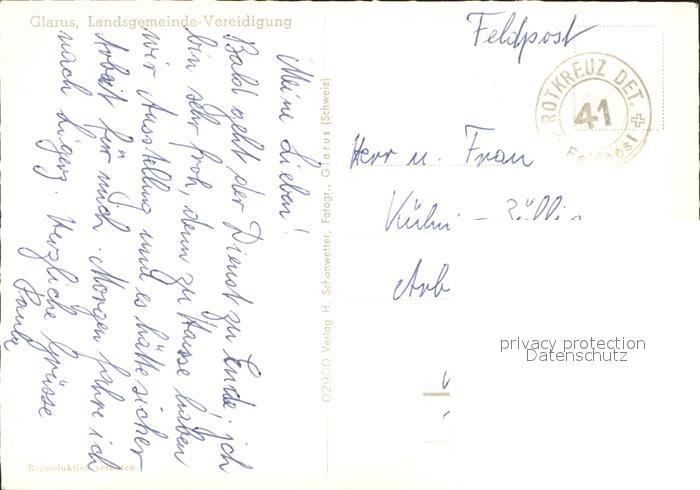 Glarus, Landsgemeinde-Vereidigung
Meine Lieben!
Bald geht der Dienst zu Ende; ich
bin sehr froh, denn zu Hause haben
wir Ausstellung und es hätte sicher
Arbeit für mich. Morgen fahre ich
nach Ligerz. Herzliche Grüsse
Paula
Reproduktion verboten
02900 Verlag H. Schönwetter, Fotogr., Glarus (Schweiz)
Feldpost
ROTKREUZ DET.
41
Feldpost
Herr u. Frau
Kühni - Züllig
Arb
privacy protection
Datenschutz